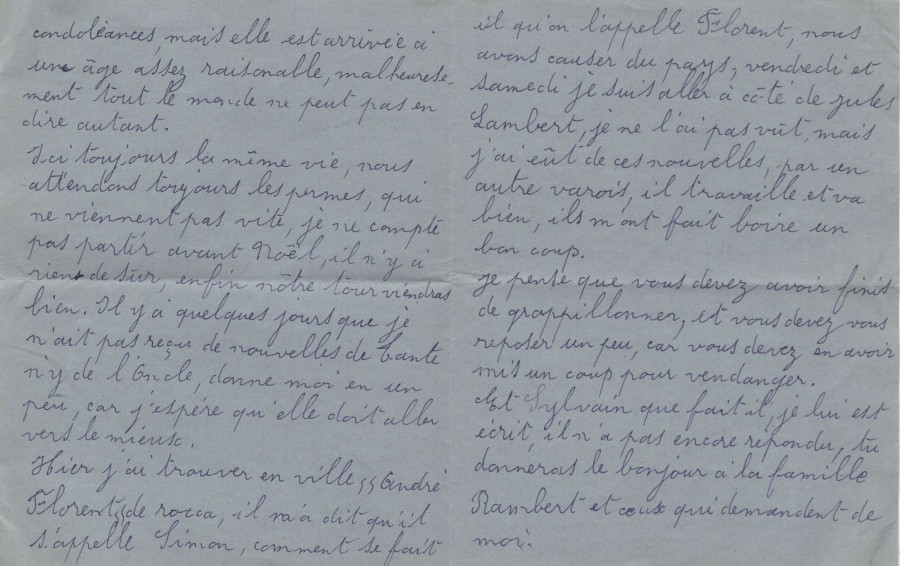 condoléances, mais elle est arrivée à
une âge assez raisonable, malheurese-
ment tout le monde ne peut pas en
dire autant.
Ici toujours la même vie, nous
attendons toujours les permes, qui
ne viennent pas vite, je ne compte
pas partir avant Noël, il n'y à
rient de sûr, enfin nôtre tour viendras
bien. Il y à quelques jours que je
n'ait pas reçu de nouvelles de tante
n'y de l'Oncle, donne moi en un
peu, car j'espére qu'elle doit aller
vers le mieux.
Hier j'ai trouver en ville "André
Florent" de rocca, il m'a dit qu'il
s'appelle Simon, comment se fait
il qu'on l'appelle Florent, nous
avons causer du pays, vendredi et
samedi je suis aller à côté de Jules
Lambert, je ne l'ai pas vût, mais
j'ai eût de ces nouvelles, par un
autre varois, il travaille et va
bien, ils m'ont fait boire un
bon coup.
Je pense que vous devez avoir finis
de grappillonner, et vous devez vous
reposer un peu, car vous devez en avoir
mis un coup pour vendanger.
Et Sylvain que fait il, je lui est
écrit, il n'à pas encore répondu, tu
donneras le bonjour à la famille
Rambert et ceux qui demandent de
moi.